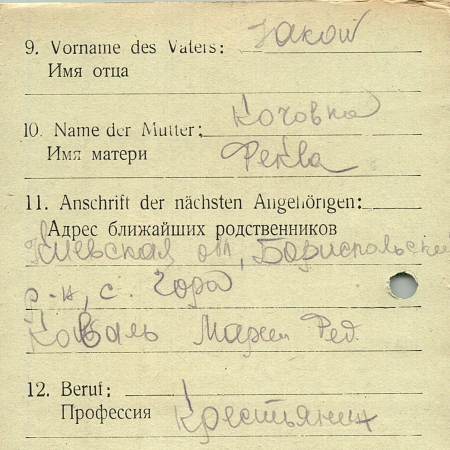 9. Vorname des Vaters: Јаков
Имя отца
Коговка
10. Name der Mutter:
Имя матери Фекла
11. Anschrift der nächsten Angehörigen:
Адрес ближайших родственников
Киевская от, Бориспольский
р-н, с. Гора
Коваль Мария Фед.
12. Beruf:
Профессия Крестьянин